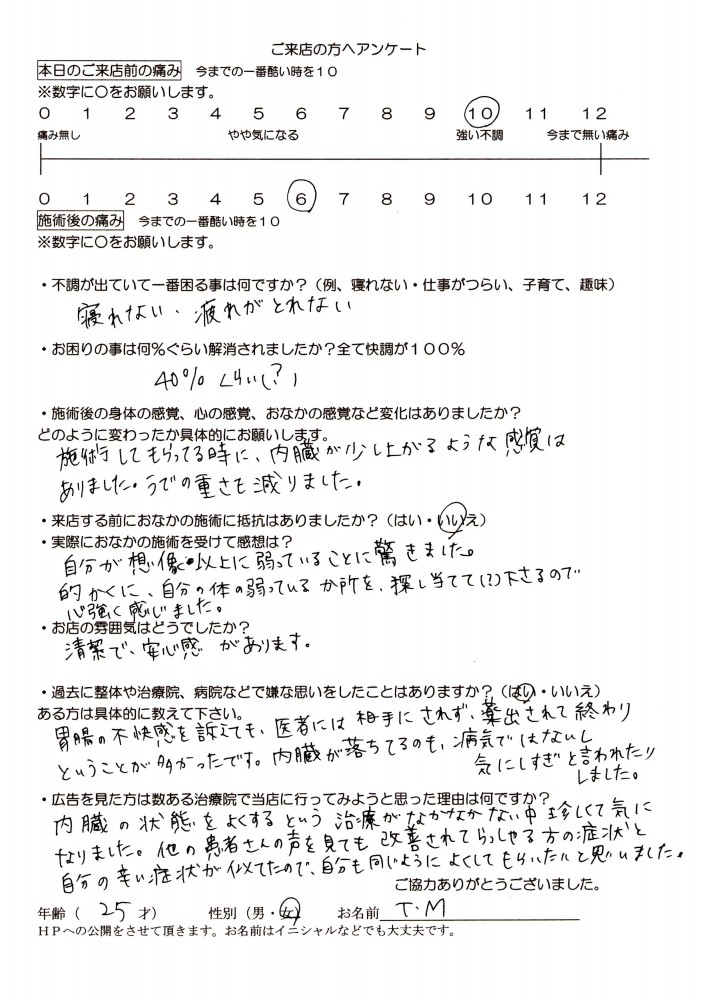 ご来店の方へアンケート
本日のご来店前の痛み 今までの一番酷い時を10
※数字に〇をお願いします。
0 1 2 3 4 5 6 7 8 9 10 11 12
痛み無し やや気になる 強い不調 今まで無い痛み
0 1 2 3 4 5 6 7 8 9 10 11 12
施術後の痛み 今までの一番酷い時を10
※数字に〇をお願いします。
・不調が出ていて一番困る事は何ですか?(例、寝れない・仕事がつらい、子育て、趣味)
寝れない、疲れがとれない
・お困りの事は何%ぐらい解消されましたか?全て快調が100%
40% くらい(?)
・施術後の身体の感覚、心の感覚、おなかの感覚など変化はありましたか?
どのように変わったか具体的にお願いします。
施術してもらってる時に、内臓が少し上がるような感覚は
ありました。うでの重さも減りました。
・来店する前におなかの施術に抵抗はありましたか?(はい・いいえ)
・実際におなかの施術を受けて感想は?
自分が想像以上に弱っていることに驚きました。
的かくに、自分の体の弱っているか所を、探し当てて(?)下さるので
心強く感じました。
・お店の雰囲気はどうでしたか?
清潔で、安心感があります。
・過去に整体や治療院、病院などで嫌な思いをしたことはありますか?(はい・いいえ)
ある方は具体的に教えて下さい。
胃腸の不快感を訴えても、医者には相手にされず、薬出されて終わり
ということが多かったです。内臓が落ちてるのも、病気ではないし
気にしすぎと言われたり
しました。
・広告を見た方は数ある治療院で当店に行ってみようと思った理由は何ですか?
内臓の状態をよくするという治療がなかなかない中珍しくて気に
なりました。他の患者さんの声を見ても改善されてらっしゃる方の症状と
自分の辛い症状が似てたので、自分も同じようによくしてもらいたいと思いました。
ご協力ありがとうございました。
年齢( 25 才) 性別(男・女) お名前 T.M
HPへの公開をさせて頂きます。お名前はイニシャルなどでも大丈夫です。